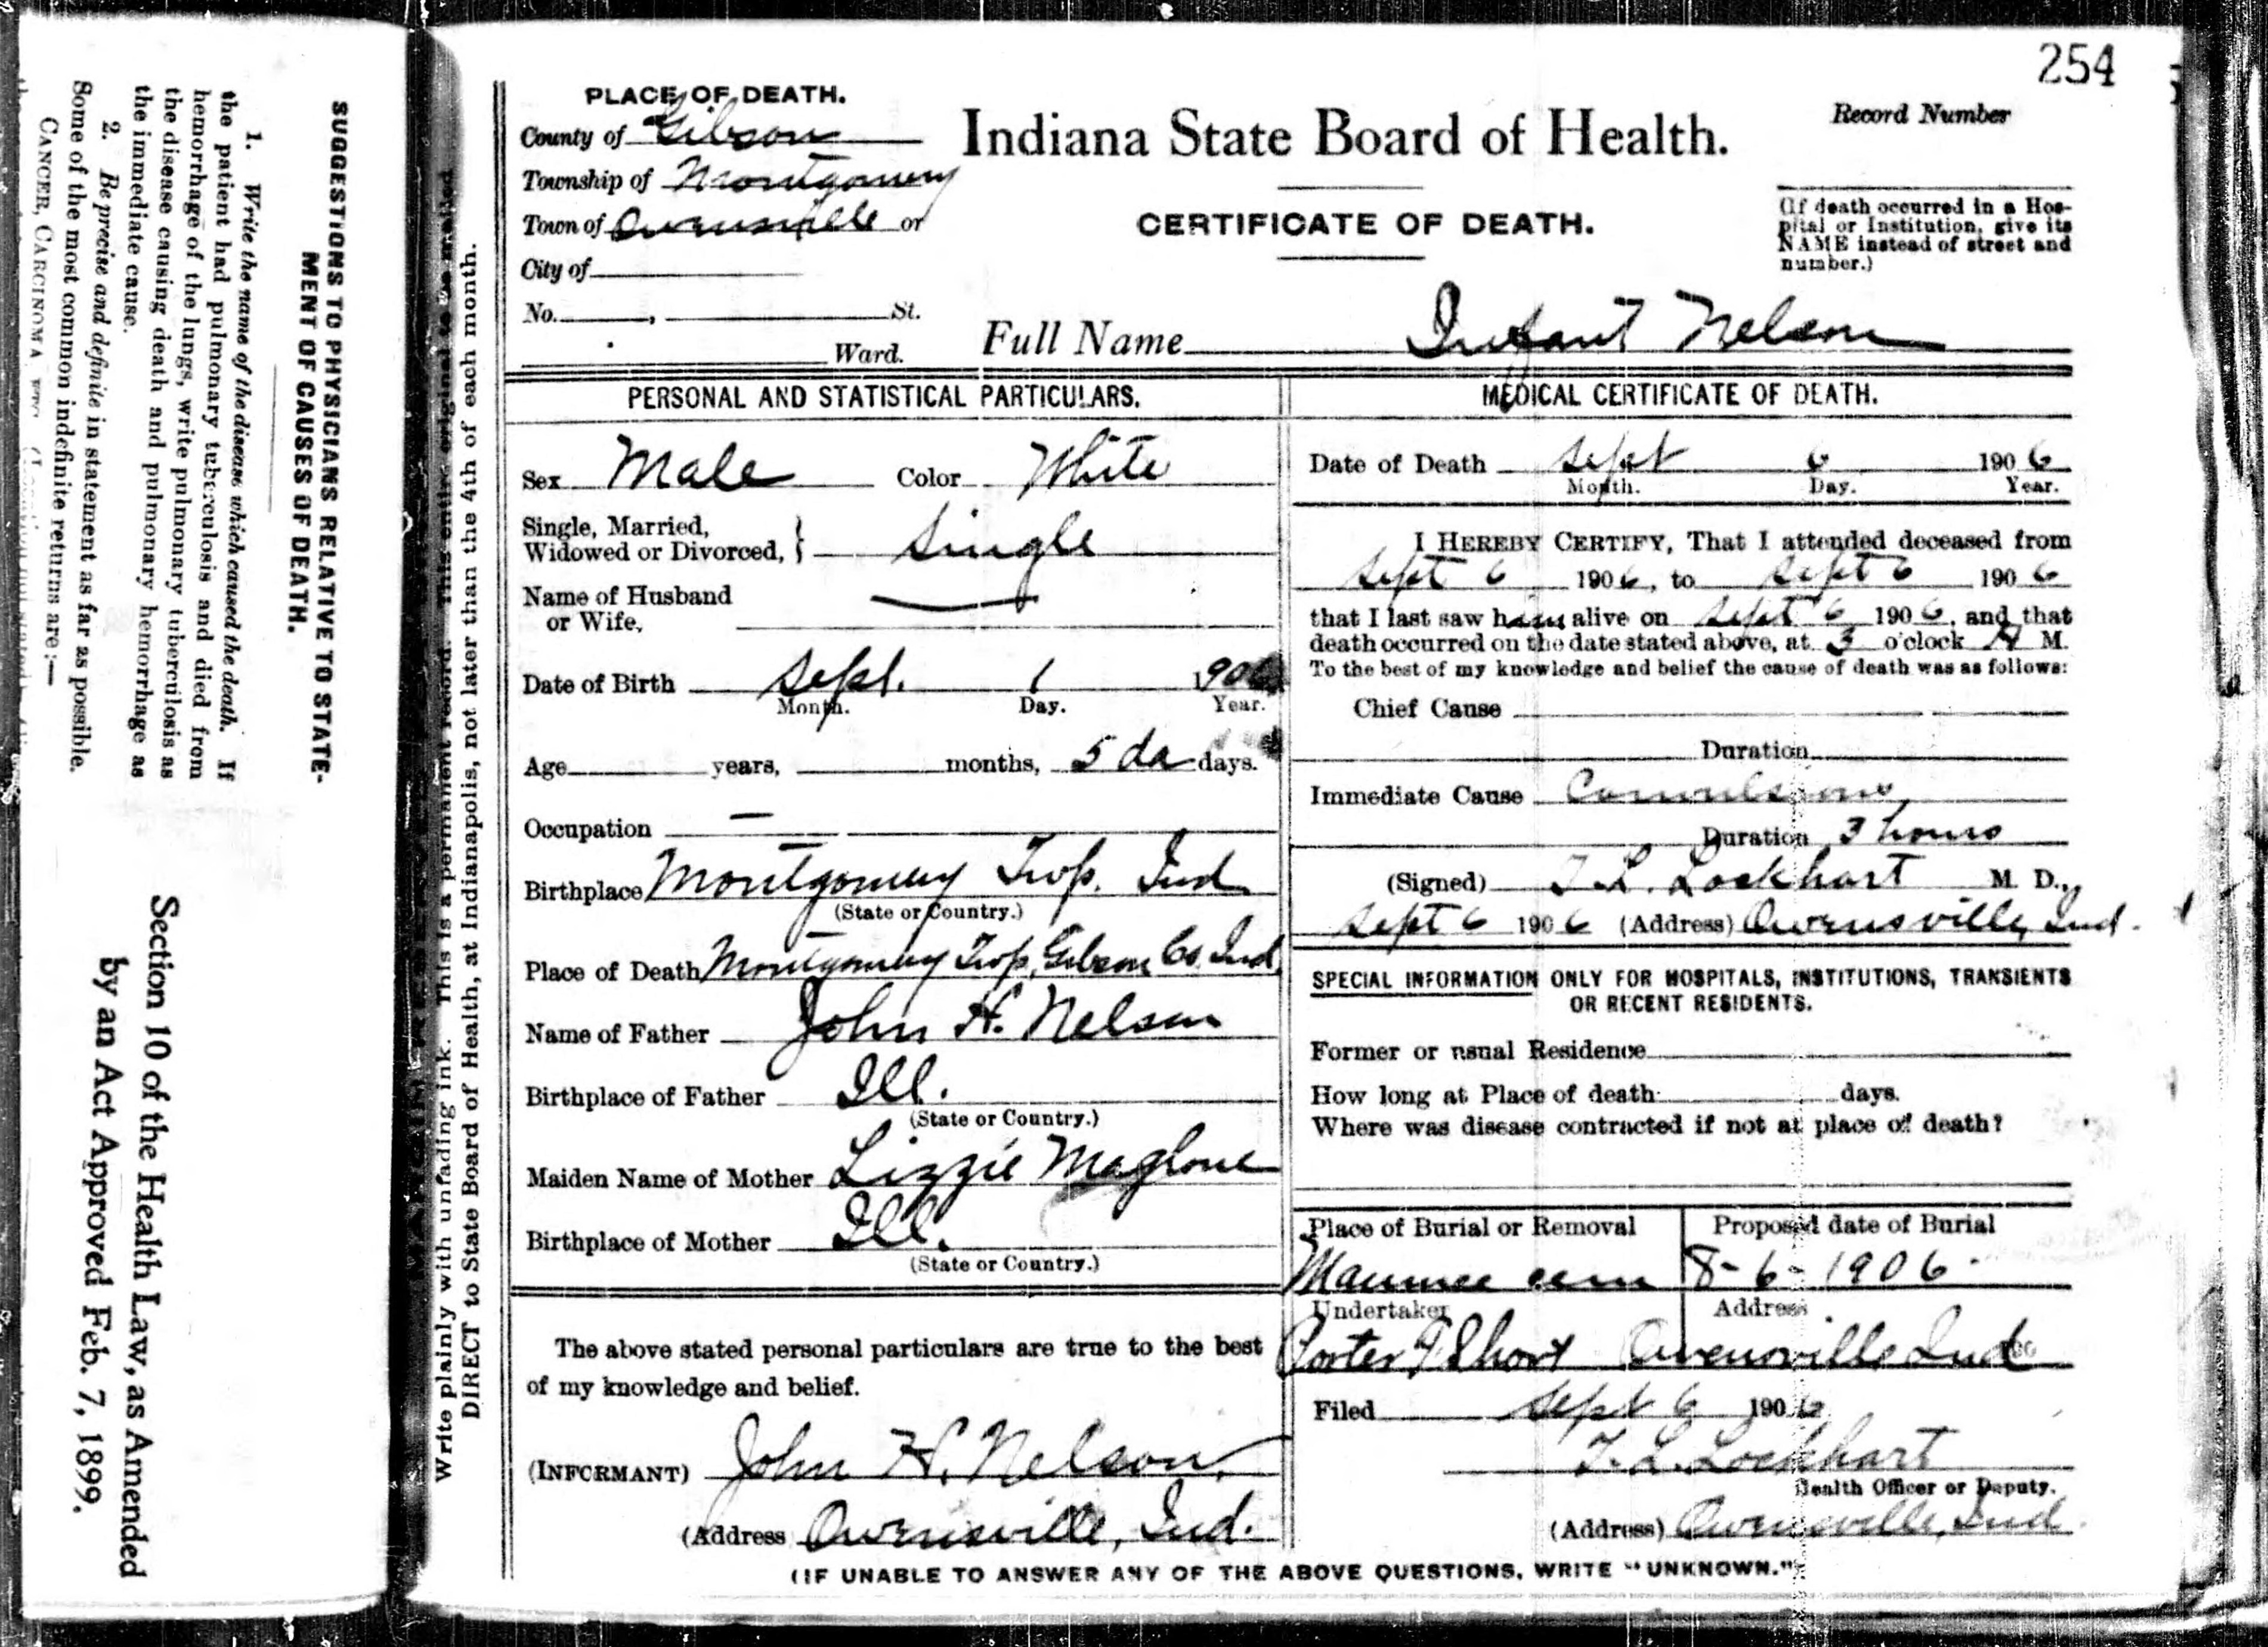 254
PLACE OF DEATH.
County of Gibson
Township of Montgomery
Town of Owensville or
City of
No. , St.
Ward.
Indiana State Board of Health.
CERTIFICATE OF DEATH.
Record Number
(If death occurred in a Hos-
pital or Institution, give its
NAME instead of street and
number.)
Full Name Infant Nelson
PERSONAL AND STATISTICAL PARTICULARS.
Sex Male Color White
Single, Married,
Widowed or Divorced, } Single
Name of Husband
or Wife,
Date of Birth Sept. 1 1906
Month. Day. Year.
Age years, months, 5 da days.
Occupation —
Birthplace Montgomery Twp. Ind
(State or Country.)
Place of Death Montgomery Twp, Gibson Co. Ind.
Name of Father John H. Nelson
Birthplace of Father Ill.
(State or Country.)
Maiden Name of Mother Lizzie Maglone
Birthplace of Mother Ill.
(State or Country.)
The above stated personal particulars are true to the best
of my knowledge and belief.
(INFORMANT) John H. Nelson.
(Address Owensville, Ind.
MEDICAL CERTIFICATE OF DEATH.
Date of Death Sept 6 1906
Month. Day. Year.
I HEREBY CERTIFY, That I attended deceased from
Sept 6 1906, to Sept 6 1906
that I last saw him alive on Sept 6 1906, and that
death occurred on the date stated above, at 3 o'clock A M.
To the best of my knowledge and belief the cause of death was as follows:
Chief Cause
Duration
Immediate Cause Convulsions,
Duration 3 hours
(Signed) T. L. Lockhart M. D.,
Sept 6 1906 (Address) Owensville, Ind.
SPECIAL INFORMATION ONLY FOR HOSPITALS, INSTITUTIONS, TRANSIENTS
OR RECENT RESIDENTS.
Former or usual Residence
How long at Place of death days.
Where was disease contracted if not at place of death?
Place of Burial or Removal Proposed date of Burial
Maumee cem 8-6-1906
Undertaker Address
Porter & Short Owensville Ind
Filed Sept 6 1906
T. L. Lockhart
Health Officer or Deputy.
(Address) Owensville, Ind.
(IF UNABLE TO ANSWER ANY OF THE ABOVE QUESTIONS, WRITE "UNKNOWN.")
Write plainly with unfading ink. This is a permanent record. This entire original to be mailed
DIRECT to State Board of Health, at Indianapolis, not later than the 4th of each month.
SUGGESTIONS TO PHYSICIANS RELATIVE TO STATE-
MENT OF CAUSES OF DEATH.
1. Write the name of the disease which caused the death. If
the patient had pulmonary tuberculosis and died from
hemorrhage of the lungs, write pulmonary tuberculosis as
the disease causing death and pulmonary hemorrhage as
the immediate cause.
2. Be precise and definite in statement as far as possible.
Some of the most common indefinite returns are:—
CANCER, CARCINOMA, ETC.
Section 10 of the Health Law, as Amended
by an Act Approved Feb. 7, 1899.